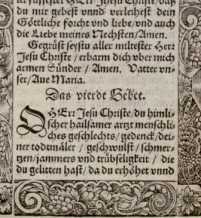 du mir gebest vnnd verleihest dein
Göttliche forcht vnd liebe vnd auch
die Liebe meines Nechsten/Amen.
Gegrüst seystu aller miltester Herr
Jesu Christe / erbarm dich vber mich
armen Sünder / Amen. Vatter vn-
ser/Aue Maria.
Das vierdt Gebet.
O Herr Jesu Christe/du himli-
scher hailsamer artzt menschli-
ches geschlechts/gedenck/dei-
ner todtmäler / geschwulst / schmer-
tzen/jammers vnd trübseligkeit / die
du gelitten hast / da du erhöhet vnnd